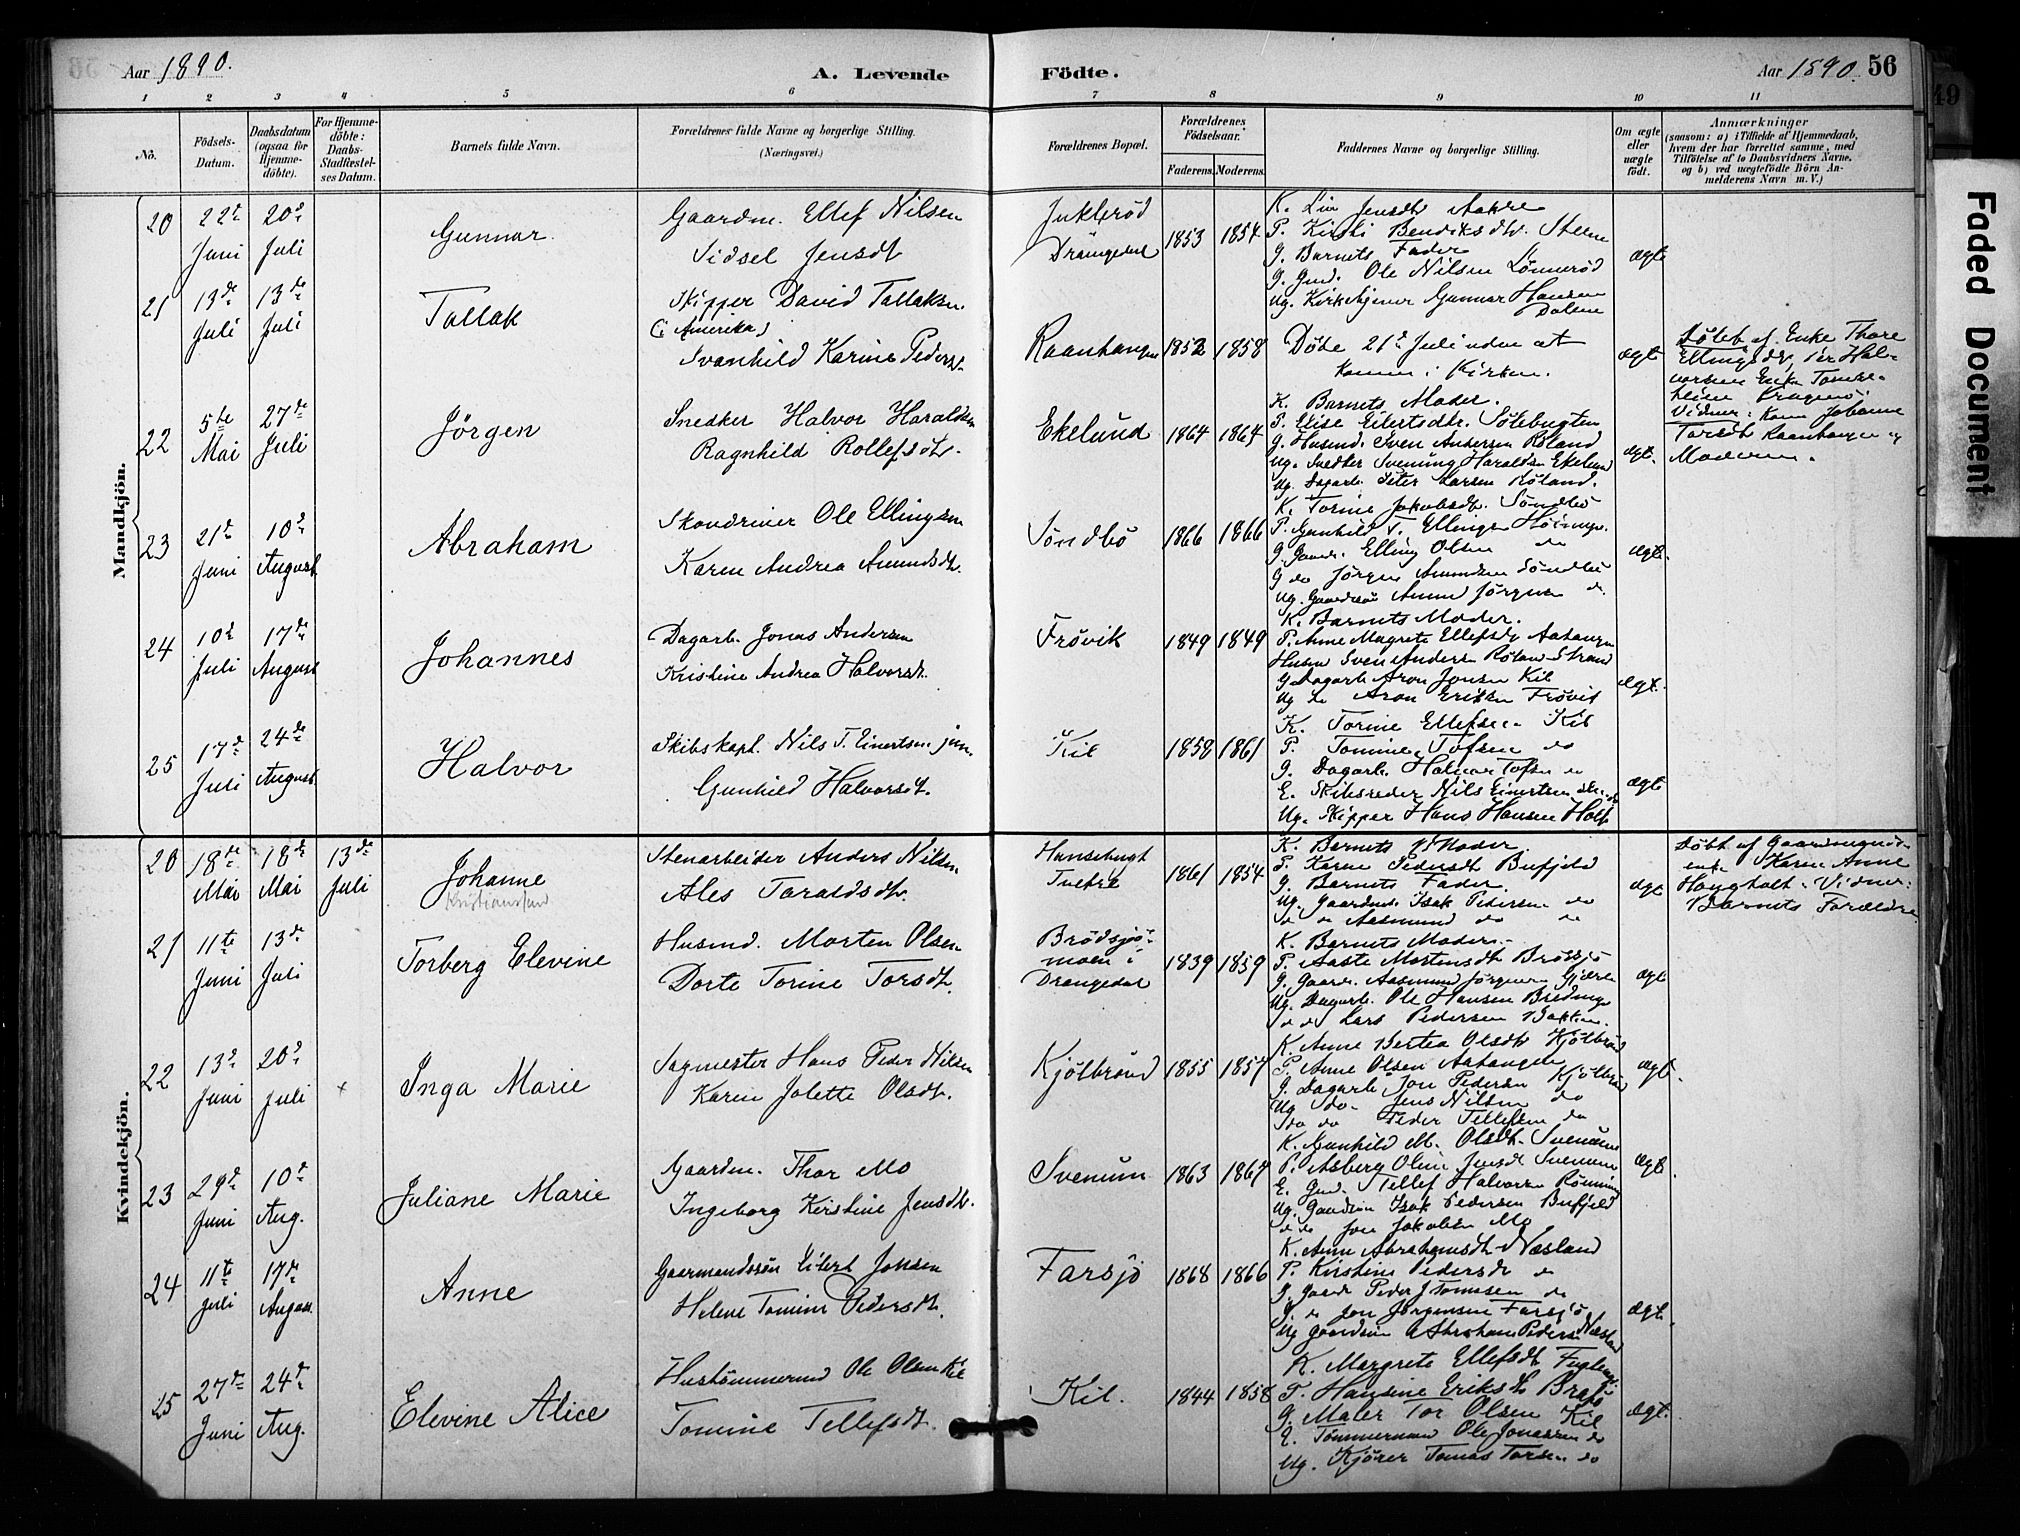 Aar 1890.
A. Levende Födte.
Aar 1890. 56
1 2 3 4 5 6 7 8 9 10 11
No.
Födsels-Datum.
Daabsdatum (ogsaa for Hjemme-döbte).
For Hjemme-döbte: Daabs-Stadfæstel-ses Datum.
Barnets fulde Navn.
Forældrenes fulde Navne og borgerlige Stilling. (Næringsvei.)
Forældrenes Bopæl.
Forældrenes Födselsaar.
Faderens. Moderens.
Faddernes Navne og borgerlige Stilling.
Om ægte eller uægte födt.
Anmærkninger
(saasom: a) i Tilfælde af Hjemmedaab, hvem der har forrettet samme, med Tilföielse af to Daabsvidners Navne, og b) ved uægtefödte Börn Anmelderens Navn m. V.)
Mandkjön.
20 22de Juni 20de Juli
Gunnar.
Gaardm. Ellef Nilsen
Sidsel Jensdt
Juklerød
Drangedal
1853 1854
K. Liv Jensdt Aakre
P. Kirsti Bendiksdtr. Steen
G. Barnets Fader
G. Gmd. Ole Nilsen Lønnerød
Ug. Kirketjener Gunnar Hansen
Dalene
ægte
21 13de Juli 13de Juli
Tallak
Skipper David Tallaksen
(i Amerika)
Svanhild Karine Pedersdt.
Raanhangen
1852 1858
Døbt 21de Juli uden at
komme i Kirken.
ægte
Døbt af Enke Thore
Ellingsdtr,
Vidner: Kone Johanne
Torsdt Raanhangen og
Moderen.
22 5te Mai 27de Juli
Jörgen
Snedker Halvor Haraldsen
Ragnhild Rollefsdtr.
Ekelund
1864 1864
K. Barnets Moder.
P. Elise Eilertsdtr. Sölebugten
G. Husmd. Sven Andersen Röland
Ug. Snedker Svenung Haraldsen Ekelund
Ug. Dagarb. Peter Larsen Röland.
ægt.
23 21de Juni 10de August
Abraham
Skovdriver Ole Ellingsen
Karen Andrea Amundsdt.
Söndbö
1866 1866
K. Torine Jakobsdt. Söndbö
P. Gunhild T. Ellings
G. Gaardm. Elling Olsen do
G do Jörgen Amundsen Söndbö
Ug. Gaardssön Amund Jörgensen do.
ægte.
24 10de Juli 17de August
Johannes
Dagarb. Jonas Andersen
Kristine Andrea Halvorsdt.
Frövik
1849 1849
K. Barnets Moder.
P. Anne Magrete Ellefsdtr Aatangen
Husm Sven Anders Röland Strand
G Dagarb Aron Jonsen Kil
Ug do Aron Eriksen Frövik
Ægt.
25 17de Juli 24de August
Halvor
Skibskapt. Nils T. Einertsen jun.
Gunhild Halvorsdt.
Kil
1858 1861
K. Torine Ellefsen Kil
P. Tomine Tofsen do
G. Dagarb. Halvor Tofsen do
E. Skibsreder Nils Einertsen sen. do
Ug. Skipper Hans Hansen Holt
Ægt
Kvindekjön.
20 18de Mai 18de Mai 13de Juli
Johanne
Kristiansand
Stenarbeider Anders Nilsen
Ales Taraldsdtr.
Hansebugt
Tvetre
1861 1854
K. Barnets Moder.
P. Karen Pedersdt Bufjeld
G. Barnets Fader.
Ug. Gaardm. Isak Pedersen do
do do Aasmund do do
ægt
Døbt af Gaardmands
enke Karen Anne
Haugholt. Vidner:
Barnets Forældre
21 11te Juni 13de Juli
Torberg Elevine
Husmd. Morten Olsen
Dorte Torine Torsdt.
Brödsjö-
moen i
Drangedal
1839 1859
K. Barnets Moder.
P. Aaste Mortensdt Brösjö
G. Gaardm. Aasmund Jörgensen Gjære
Ug. Dagarb. Ole Hansen
do do Lars Pedersen Bakken.
ægt
22 13de Juni 20de Juli
Inga Marie
Sagmester Hans Peder Nilsen
Karen Jolette Olsdt.
Kjölbrönd
1855 1857
K. Anne Bertea Olsdt Kjölbrönd
P. Anne Olsen Aatangen
G. Dagarb. Jon Pedersen Kjölbrönd
Ug do Jens Nilsen do
do do Peder Tellefsen do
ægt.
23 29de Juni 10de Aug.
Juliane Marie
Gaardm. Thor Mo
Ingeborg Kirstine Jensdt.
Svenum
1863 1867
K. Gunhild M. Olsdt. Svenum
P. Asberg Oline Jensdt Svenum
E. Gmd. Tellef Halvorsen Rönning
Ug. Gaardsön Isak Pedersen Bufjeld
do do Jon Jakobsen Mo
Ægt.
24 11te Juli 17de August.
Anne
Gaarmandssön Eilert Jonsen
Helene Tomine Pedersdt.
Farsjö
1868 1866
K. Anne Abrahamsdt Næsland
P. Kirstine Pedersdt do
G. Gaardm Peder J Tomesen do
G. do Jon Jörgensen Farsjö
Ug Gaardsön Abraham Pedersen Næsland
Ægt.
25 27de Juni 24de Aug.
Elevine Alice
Hustömmermd Ole Olsen Kil
Tomine Tellefsdt.
Kil.
1844 1858
K. Margrete Ellefsdt
P. Hansine Eriksdt
G. Maler Tor Olsen Kil
G. Tömmermand Ole Jonassen do
Ug. Kjører Tomas Torsen do
Ægt.
Faded Document
49